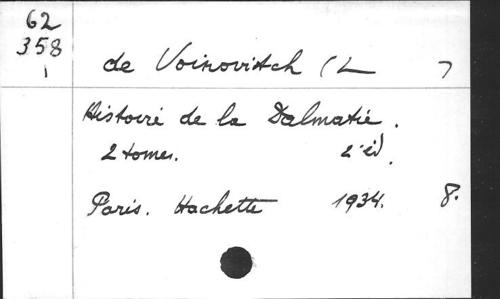 62
358
1
de Voinovitch (L )
Histoire de la Dalmatie.
2 tomes. 2e éd.
Paris. Hachette 1934. 8.